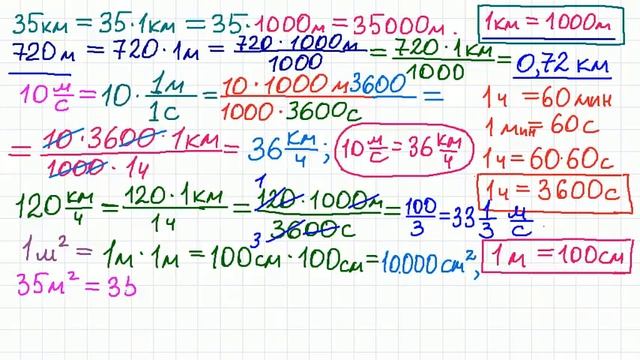 35км = 35·1км = 35·1000м = 35000м.
1км = 1000м
720м = 720·1м = 720·1000м/1000 = 720·1км/1000 = 0,72 км
10 м/с = 10·1м/1с = 10·1000м 3600/1000·3600с =
1ч = 60мин
1мин = 60с
= 10·3600·1км/1000·1ч = 36 км/ч; 10 м/с = 36 км/ч
1ч = 60·60с
1ч = 3600с
120 км/ч = 120·1км/1ч = 1 120·1000м/3600с 3 = 100/3 = 33 1/3 м/с
1м² = 1м·1м = 100см·100см = 10.000см²,
1м = 100см
35м² = 35